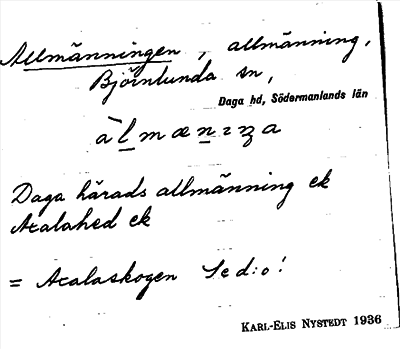 Allmänningen, allmänning,
Björnlunda sn,
Daga hd, Södermanlands län
Daga härads allmänning ek
Atalahed ek
= Acalaskogen Se d:o!
KARL-ELIS NYSTEDT 1936